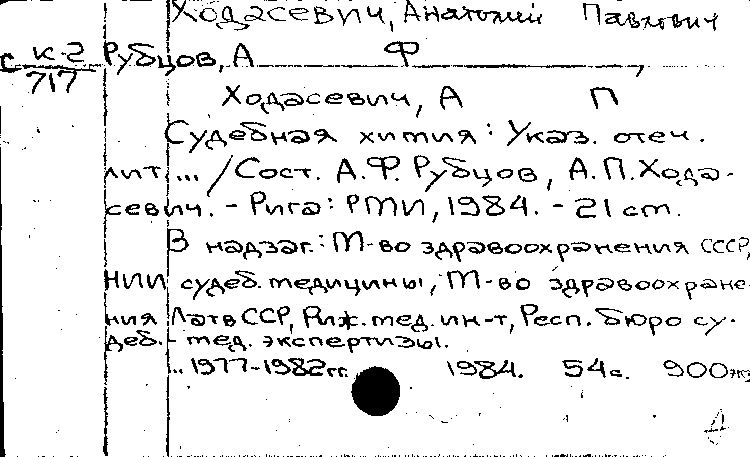 Ходасевич, Анатолий Павлович
с к-2 Рубцов, А Ф ,
717
Ходасевич, А П
Судебная химия: Указ. отеч.
лит... /Сост. А.Ф. Рубцов, А.П. Хода-
севич. - Рига: РМИ, 1984. - 21 cm.
В надзаг.: М-во здравоохранения СССР,
НИИ судеб. медицины, М-во здравоохране-
ния ЛатвССР, Риж. мед. ин-т, Респ. бюро су-
деб. - мед. экспертизы.
.. 1977-1982 гг. 1984. 54 с. 900 экз